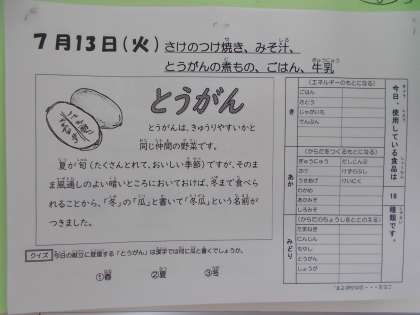 7月13日(火) さけのつけ焼き、みそ汁、
とうがんの煮もの、ごはん、牛乳
とうがん
とうがんは、きゅうりやすいかと
同じ仲間の野菜です。
夏が旬(たくさんとれて、おいしい季節)ですが、そのま
ま風通しのよい暗いところにおいておけば、冬まで食べら
れることから、「冬」の「瓜」と書いて「冬瓜」という名前が
つきました。
クイズ 今日の献立に登場する「とうがん」は漢字では何に瓜と書くでしょうか。
①春 ②夏 ③冬
今日、使用している食品は
18
種類です。
き
(エネルギーのもとになる)
ごはん
さとう
じゃがいも
でんぷん
あか
(からだをつくるもとになる)
ぎゅうにゅう だしこんぶ
さけ
うすあげ けいにく
わかめ
あかみそ
しろみそ
みどり
(からだのちょうしをととのえる)
たまねぎ
にんじん
もやし
とうがん
しょうが